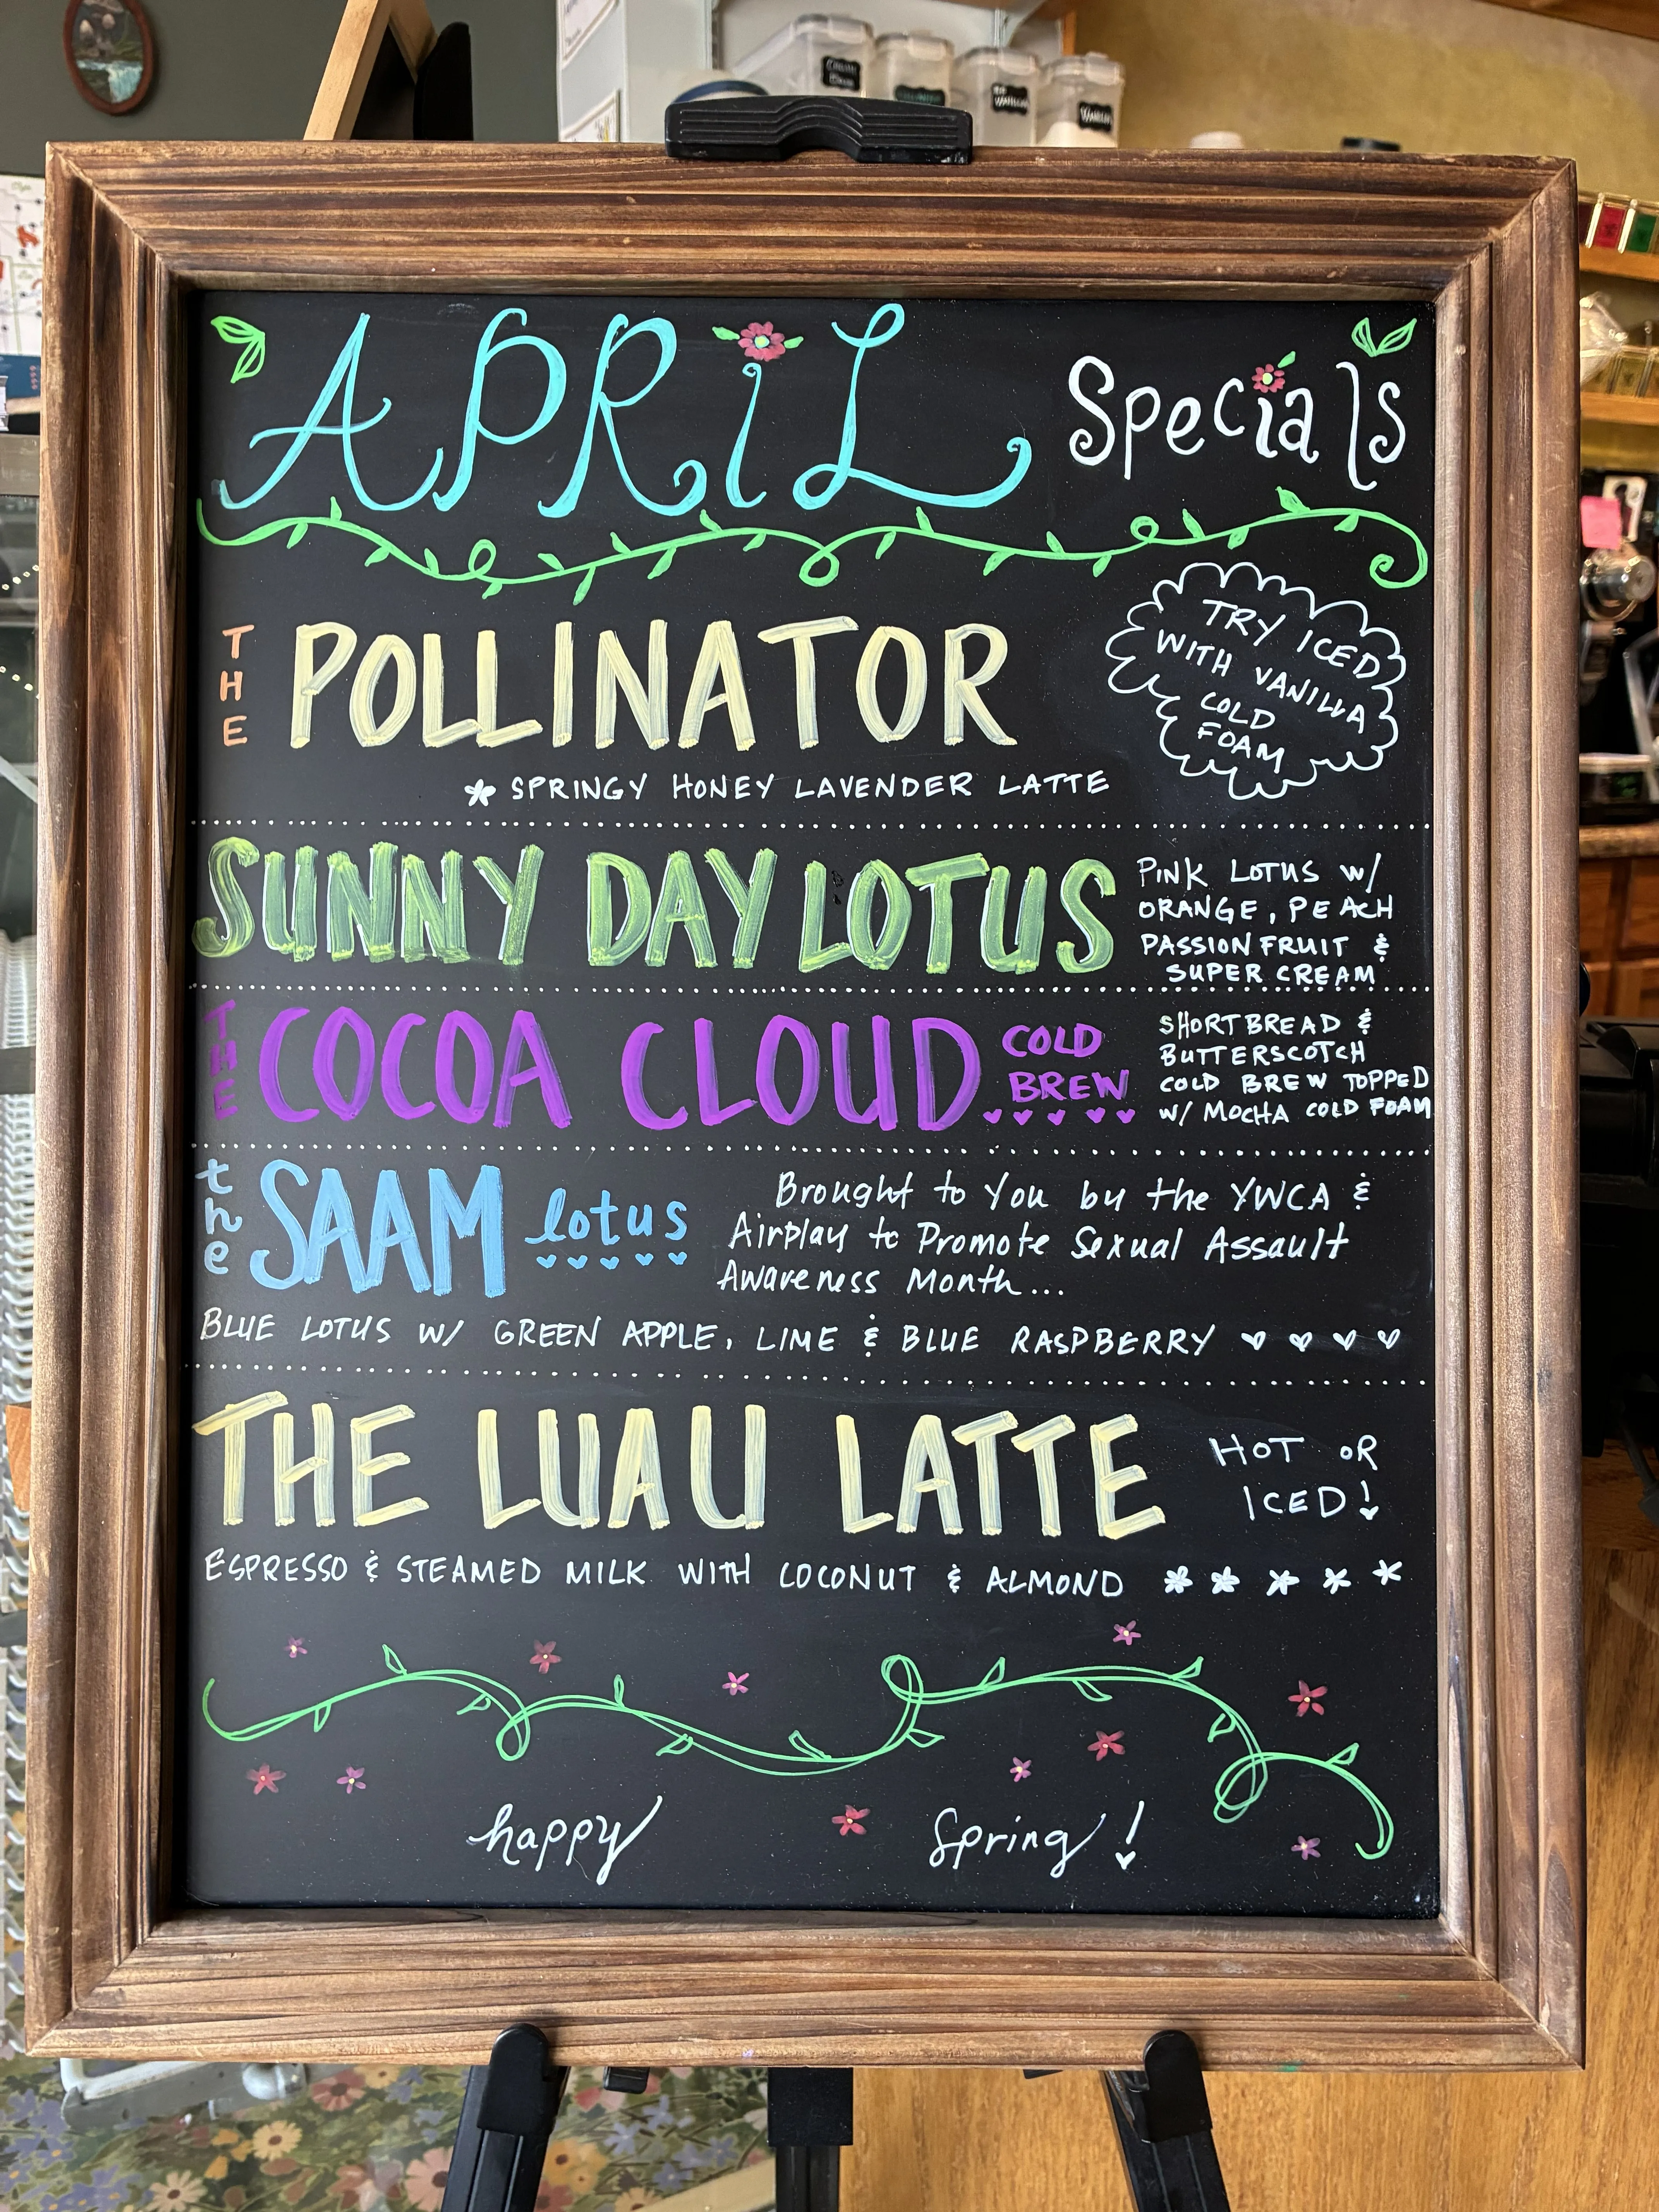 APRiL Specials
THE POLLINATOR
TRY ICED
WITH VANILLA
COLD
FOAM
SPRINGY HONEY LAVENDER LATTE
SUNNY DAY LOTUS
PINK LOTUS W/
ORANGE, PEACH
PASSION FRUIT &
SUPER CREAM
THE COCOA CLOUD COLD
BREW
SHORTBREAD &
BUTTERSCOTCH
COLD BREW TOPPED
W/ MOCHA COLD FOAM
the SAAM lotus
Brought to You by the YWCA &
Airplay to Promote Sexual Assault
Awareness Month...
BLUE LOTUS W/ GREEN APPLE, LIME & BLUE RASPBERRY
THE LUAU LATTE
HOT OR
ICED!
ESPRESSO & STEAMED MILK WITH COCONUT & ALMOND
happy Spring!